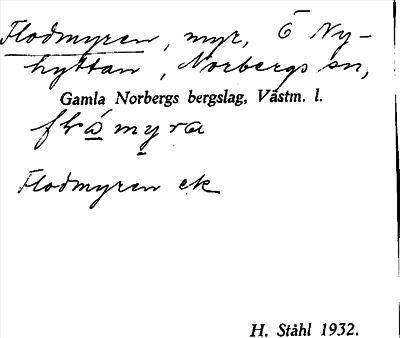 Flodmyren, myr, Ö Ny-
hyttan, Norbergs sn,
Gamla Norbergs bergslag, Västm. l.
Flodmyren ek
H. Ståhl 1932.